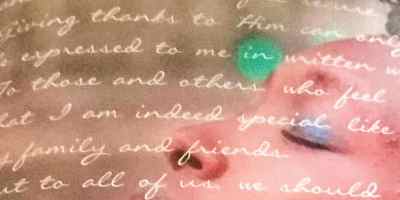 giving thanks to Him can only
expressed to me in written
To those and others who feel
that I am indeed special like
family and friends.
to all of us, we should